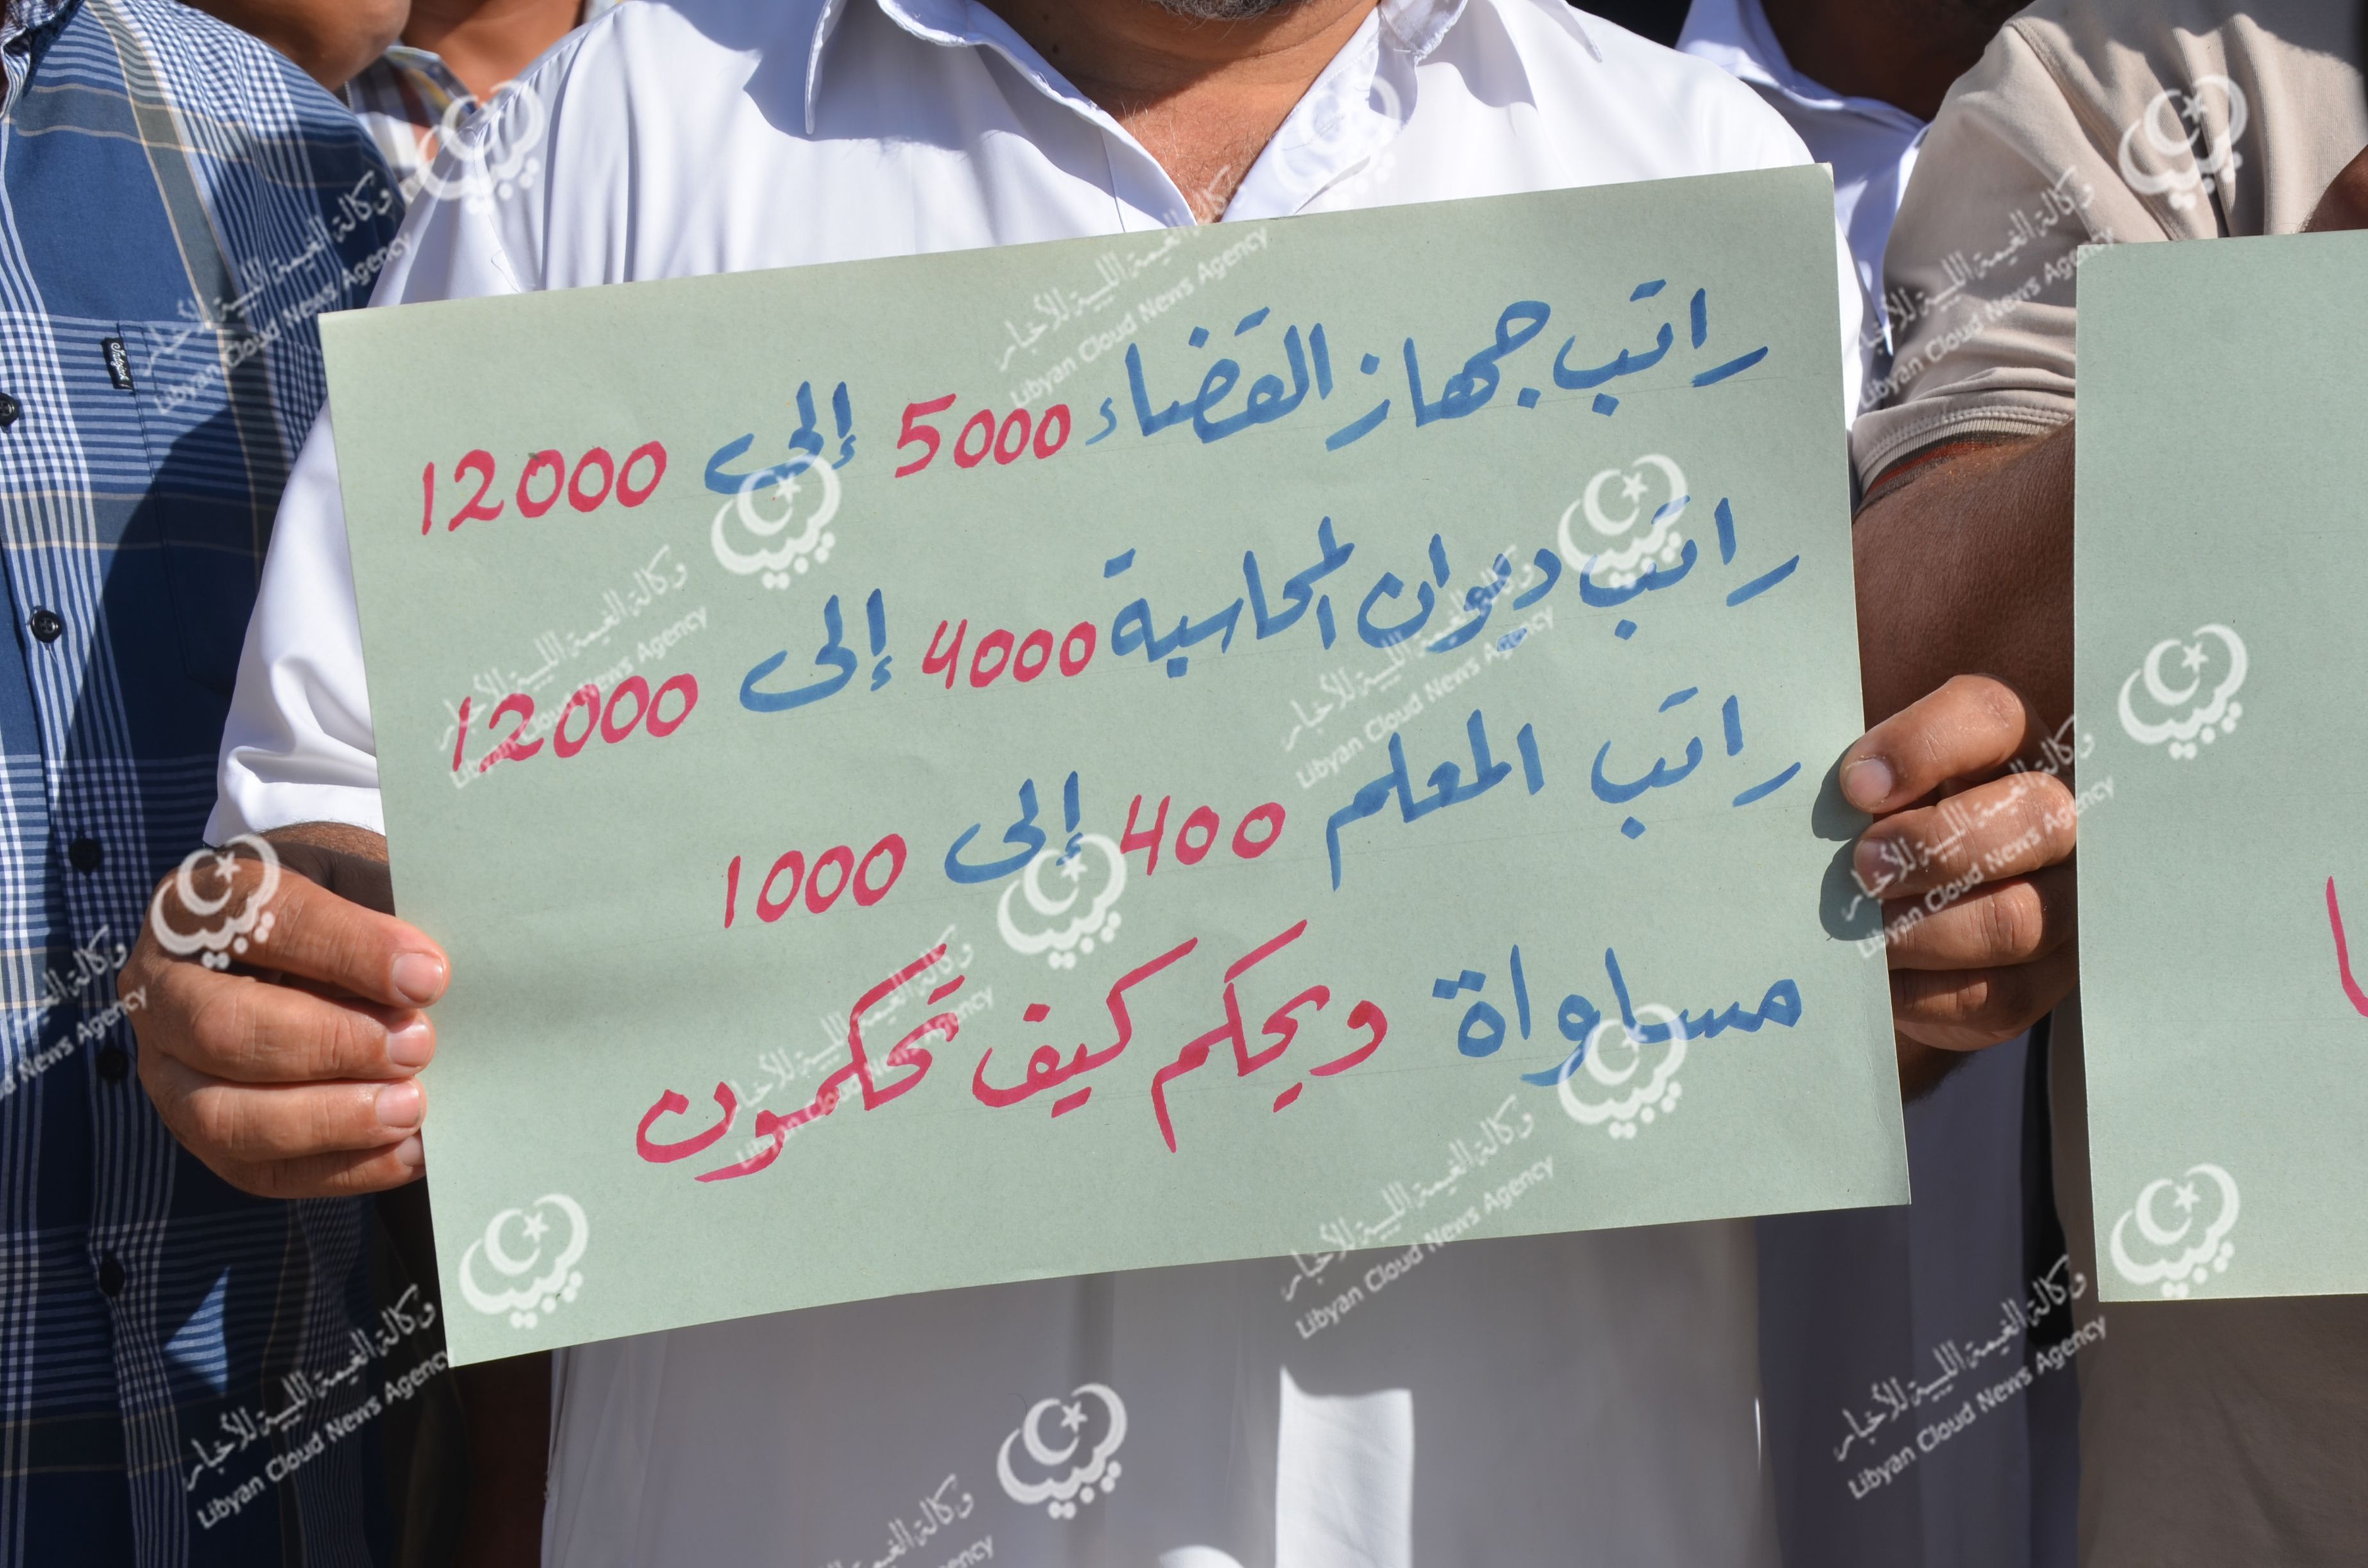 راتب جهاز القضاء 5000 إلى 12000
راتب ديوان المحاسبة 4000 إلى 12000
راتب المعلم 400 إلى 1000
مساواة ويحكم كيف تحكمون
وكالة الغيمة الليبية للأخبار
Libyan Cloud News Agency
ليبيا